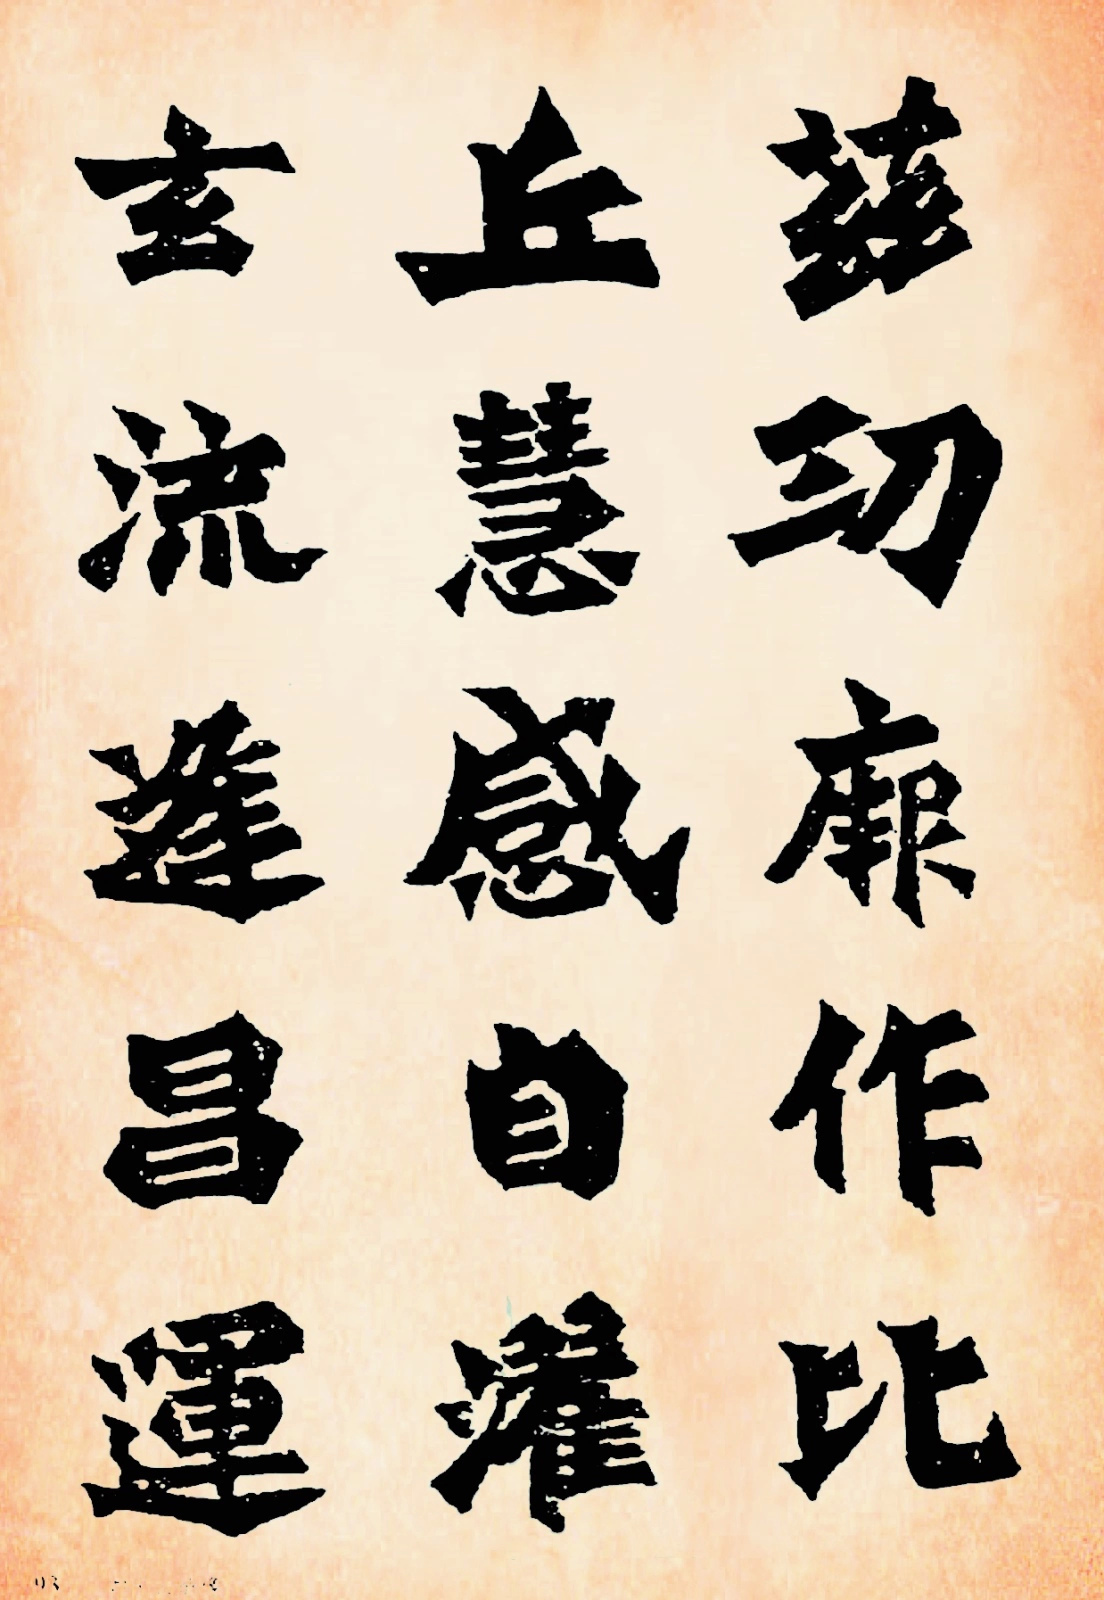 茲功厥作比
丘慧感自濯
玄流逢昌運